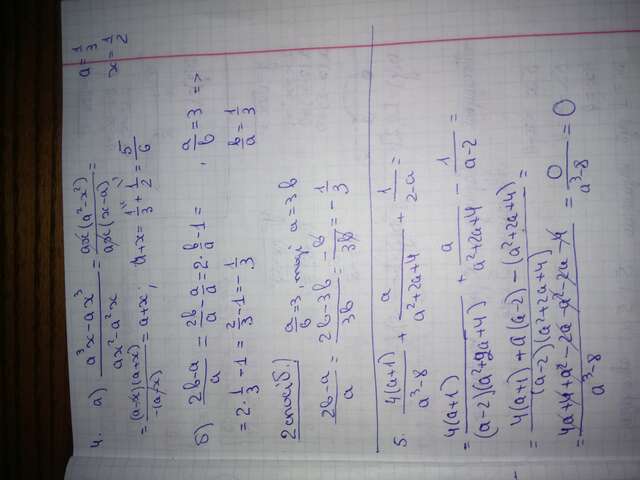 4. а) (a³x-ax³)/(ax²-a²x) = (ax(a²-x²))/(ax(x-a)) = a=1/3
= ((a-x)(a+x))/(-(a-x)) = a+x; a+x = 1/3 + 1/2 = 5/6 x=1/2
б) (2b-a)/a = 2b/a - a/a = 2·b/a - 1 = , a/b = 3 =>
= 2·1/3 - 1 = 2/3 - 1 = -1/3 b/a = 1/3
2 спосіб.) a/b = 3, тоді a = 3b
(2b-a)/a = (2b-3b)/3b = -b/3b = -1/3
5. 4(a+1)/(a³-8) + a/(a²+2a+4) + 1/(2-a) =
= 4(a+1)/((a-2)(a²+2a+4)) + a/(a²+2a+4) - 1/(a-2) =
= (4(a+1)+a(a-2)-(a²+2a+4))/((a-2)(a²+2a+4)) =
= (4a+4+a²-2a-a²-2a-4)/(a³-8) = 0/(a³-8) = 0